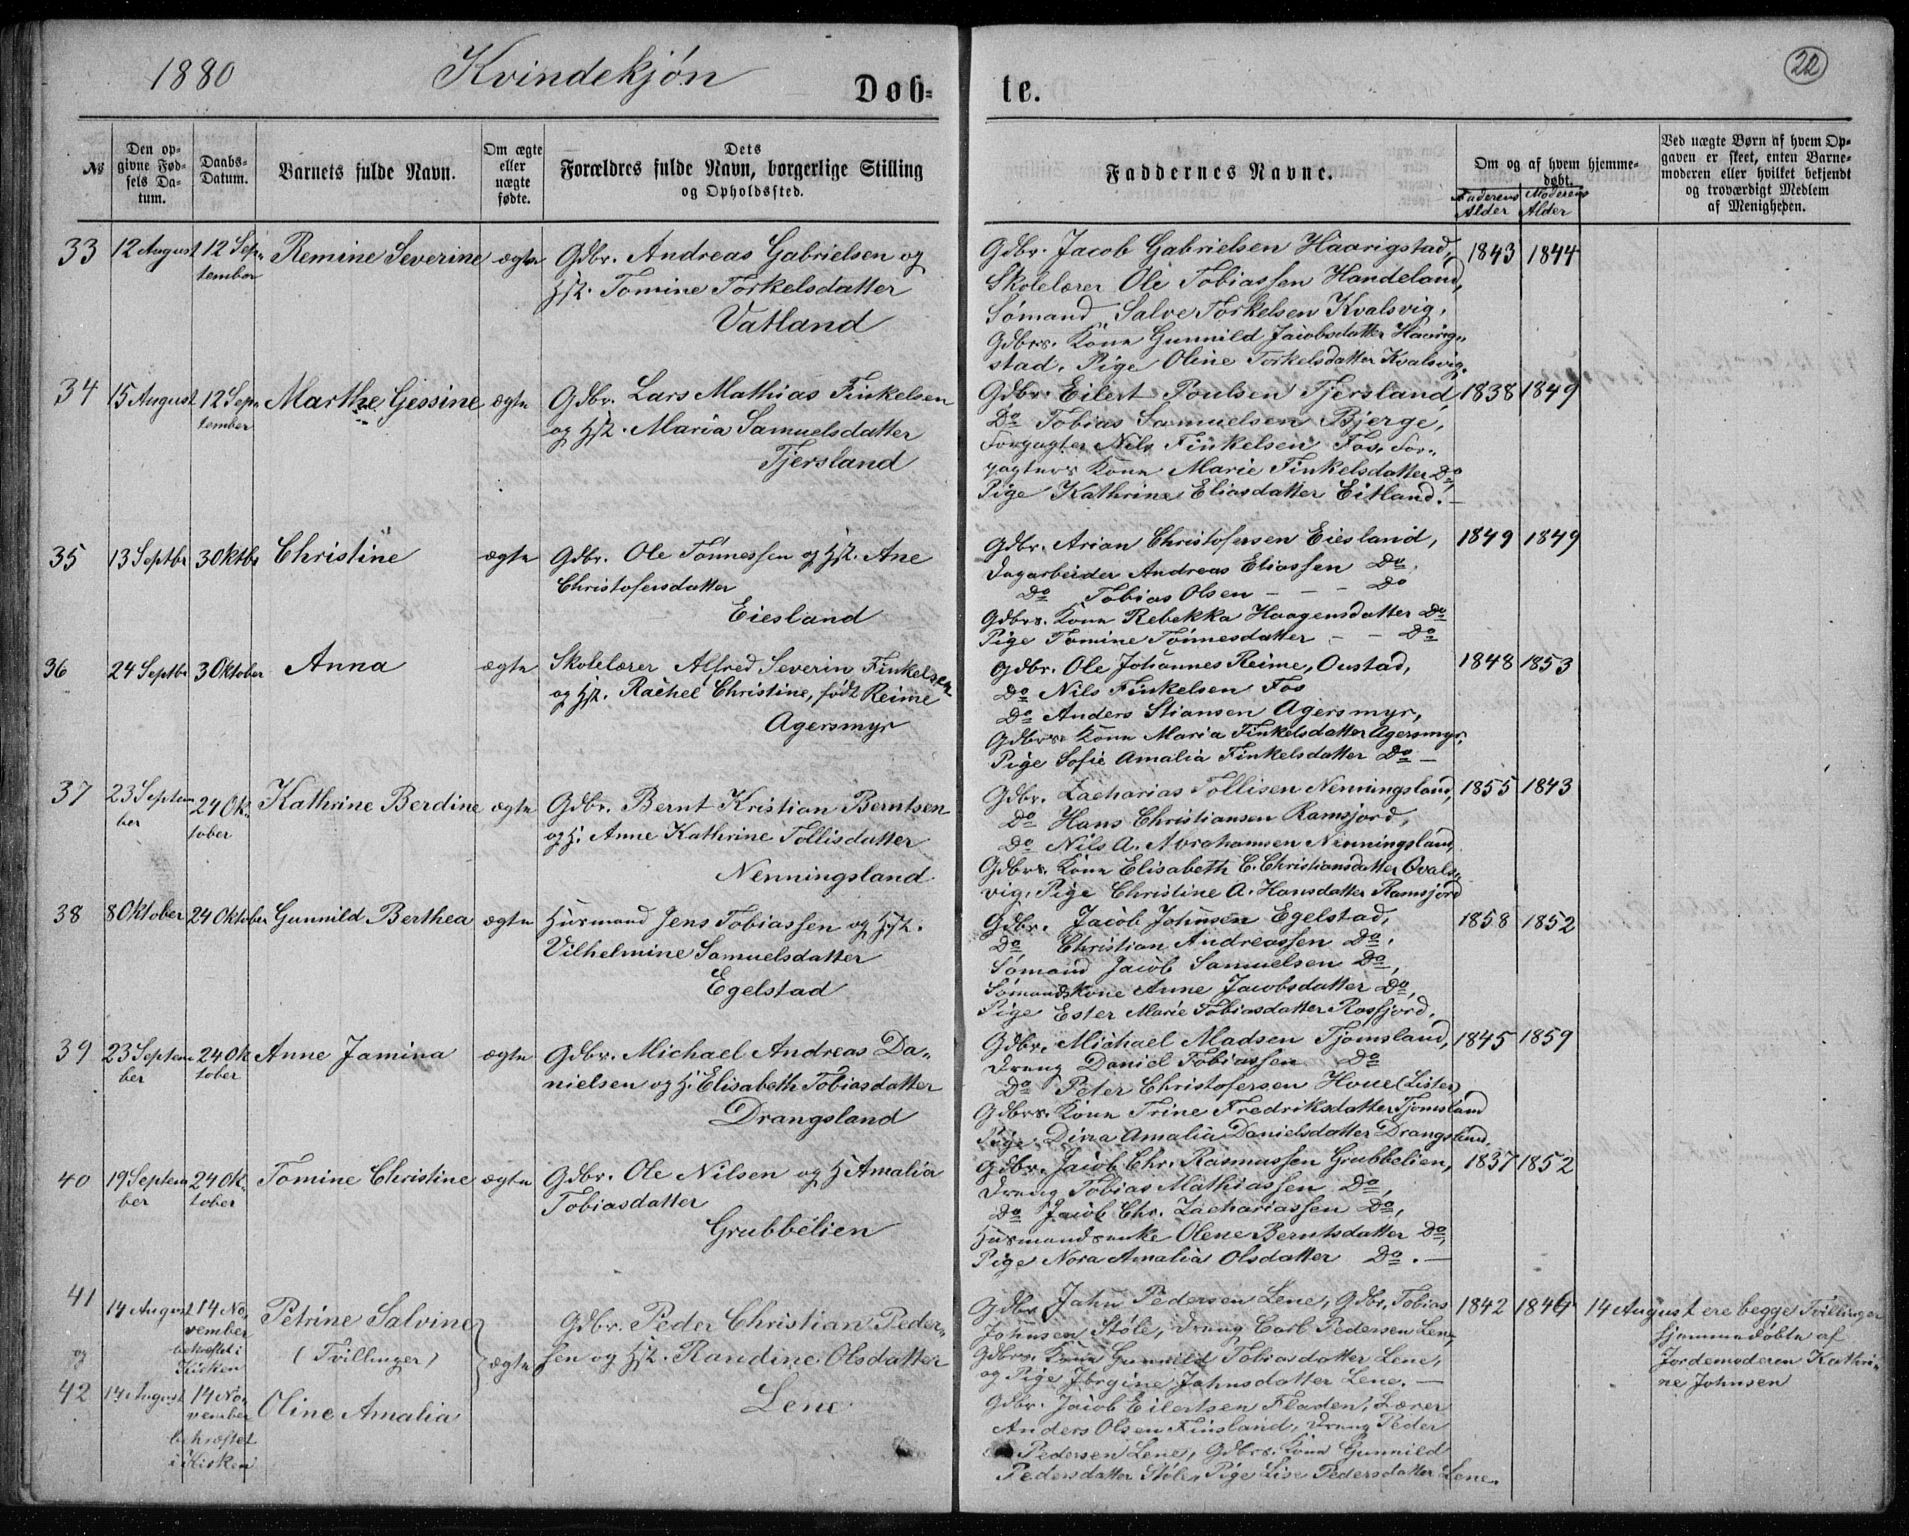 1880 Kvindekjøn Døb= te. 22
No
Den opgivne Fødsels Datum.
Daabs-Datum.
Barnets fulde Navn.
Om ægte eller uægte fødte.
Dets Forældres fulde Navn, borgerlige Stilling og Opholdssted.
Faddernes Navne.
Om og af hvem hjemmedøbt.
Faderens Alder
Moderens Alder
Ved uægte Børn af hvem Opgaven er skeet, enten Barnemoderen eller hvilket bekjendt og troværdigt Medlem af Menigheden.
33 12 August 12 September Remine Severine ægte
Gdbr. Andreas Gabrielsen og
Hst. Tomine Torkelsdatter
Vatland
Gdbr. Jacob Gabrielsen Haarigstad, 1843 1844
Skolelærer Ole Tobiassen Handeland,
Sømand Salve Torkelsen Kvalsvig,
Gdbrs. Kone Gunnild Jacobsdatter Haarig=
stad, Pige Oline Torkelsdatter Kvalsvig.
34 15 August 12 September Marthe Gessine ægte
Gdbr. Lars Mathias Finkelsen
og Hst. Maria Samuelsdatter
Tjersland
Gdbr. Eilert Poulsen Tjersland, 1838 1849
Do Tobias Samuelsen Bjerge,
Forpagter Nils Finkelsen Fos, For=
pagters Kone Marie Finkelsdatter Do,
Pige Kathrine Eliasdatter Eitland.
35 13 Septbr 3 Oktbr Christine ægte
Gdbr. Ole Tønnessen og Hst. Ane
Christofersdatter
Eiesland
Gdbr. Arian Christofersen Eiesland, 1849 1849
Dagarbeider Andreas Eliassen Do,
Do Tobias Olsen - - - Do
Gdbrs. Kone Rebekka Haagensdatter Do
Pige Tomine Tønnesdatter - - Do
36 24 Septbr 3 Oktober Anna ægte
Skolelærer Alfred Severin Finkelsen
og Hst. Rachel Christine, født Reime
Agersmyr
Gdbr. Ole Johannes Reime, Oustad, 1848 1853
Do Nils Finkelsen Fos
Do Anders Stiansen Agersmyr,
Gdbrs. Kone Maria Finkelsdatter Agersmyr,
Pige Sofie Amalia Finkelsdatter Do -
37 23 September 24 Oktober Kathrine Berdine ægte
Gdbr. Bernt Kristian Berntsen
og H. Anne Kathrine Tollisdatter
Nenningsland
Gdbr. Zacharias Tollisen Nenningsland, 1855 1843
Do Hans Christiansen Ramsjord,
Do Nils A. Abrahamsen Nenningsland,
Gdbrs. Kone Elisabeth C. Christiansdatter Qvals=
vig, Pige Christine A. Hansdatter Ramsjord
38 8 Oktober 24 Oktober Gunnild Berthea ægte
Husmand Jens Tobiassen og Hst.
Vilhelmine Samuelsdatter
Egelstad
Gdbr. Jacob Johnsen Egelstad, 1858 1852
Do Christian Andreassen Do,
Sømand Jacob Samuelsen Do,
Sømandskone Anne Jacobsdatter Do,
Pige Ester Marie Tobiasdatter Rosfjord.
39 23 September 24 Oktober Anne Jamina ægte
Gdbr. Michael Andreas Da=
nielsen og H. Elisabeth Tobiasdatter
Drangsland
Gdbr. Michael Madsen Tjomsland, 1845 1859
Dreng Daniel Tobiassen Do
Do Peter Christofersen Houe (Lister)
Gdbrs. Kone Trine Fredriksdatter Tjomsland
Pige Dina Amalia Danielsdatter Drangsland.
40 19 September 24 Oktober Tomine Christine ægte
Gdbr. Ole Nilsen og H. Amalia
Tobiasdatter
Grubbelien
Gdbr. Jacob Chr. Rasmussen Grubbelien, 1837 1852
Dreng Tobias Mathiassen Do,
Do Jacob Chr. Zachariassen Do,
Husmandsenke Olene Berntsdatter Do,
Pige Nora Amalia Olsdatter Do. -
41 14 August 14 November bekræftet i Kirken Petrine Salvine
og (Tvillinger) ægte
Gdbr. Peder Christian Peder=
sen og Hst. Randine Olsdatter
Lene
Gdbr. Jahn Pedersen Lene, Gdbr. Tobias 1842 1844
Johnsen Støle, Dreng Carl Pedersen Lene,
Gdbrs. Kone Gunnild Tobiasdatter Lene,
og Pige Jørgine Jahnsdatter Lene. -
14 August ere begge Tvillinger
hjemmedøbte af
Jordemoderen Kathri=
ne Johnsen
42 14 August 14 November bekræftet i Kirken Oline Amalia
Gdbr. Jacob Eilertsen Fladen, Lærer
Anders Olsen Finsland, Dreng Peder
Pedersen Lene, Gdbrs. Kone Gunnild
Pedersdatter Støle, Pige Lise Pedersdatter Lene.